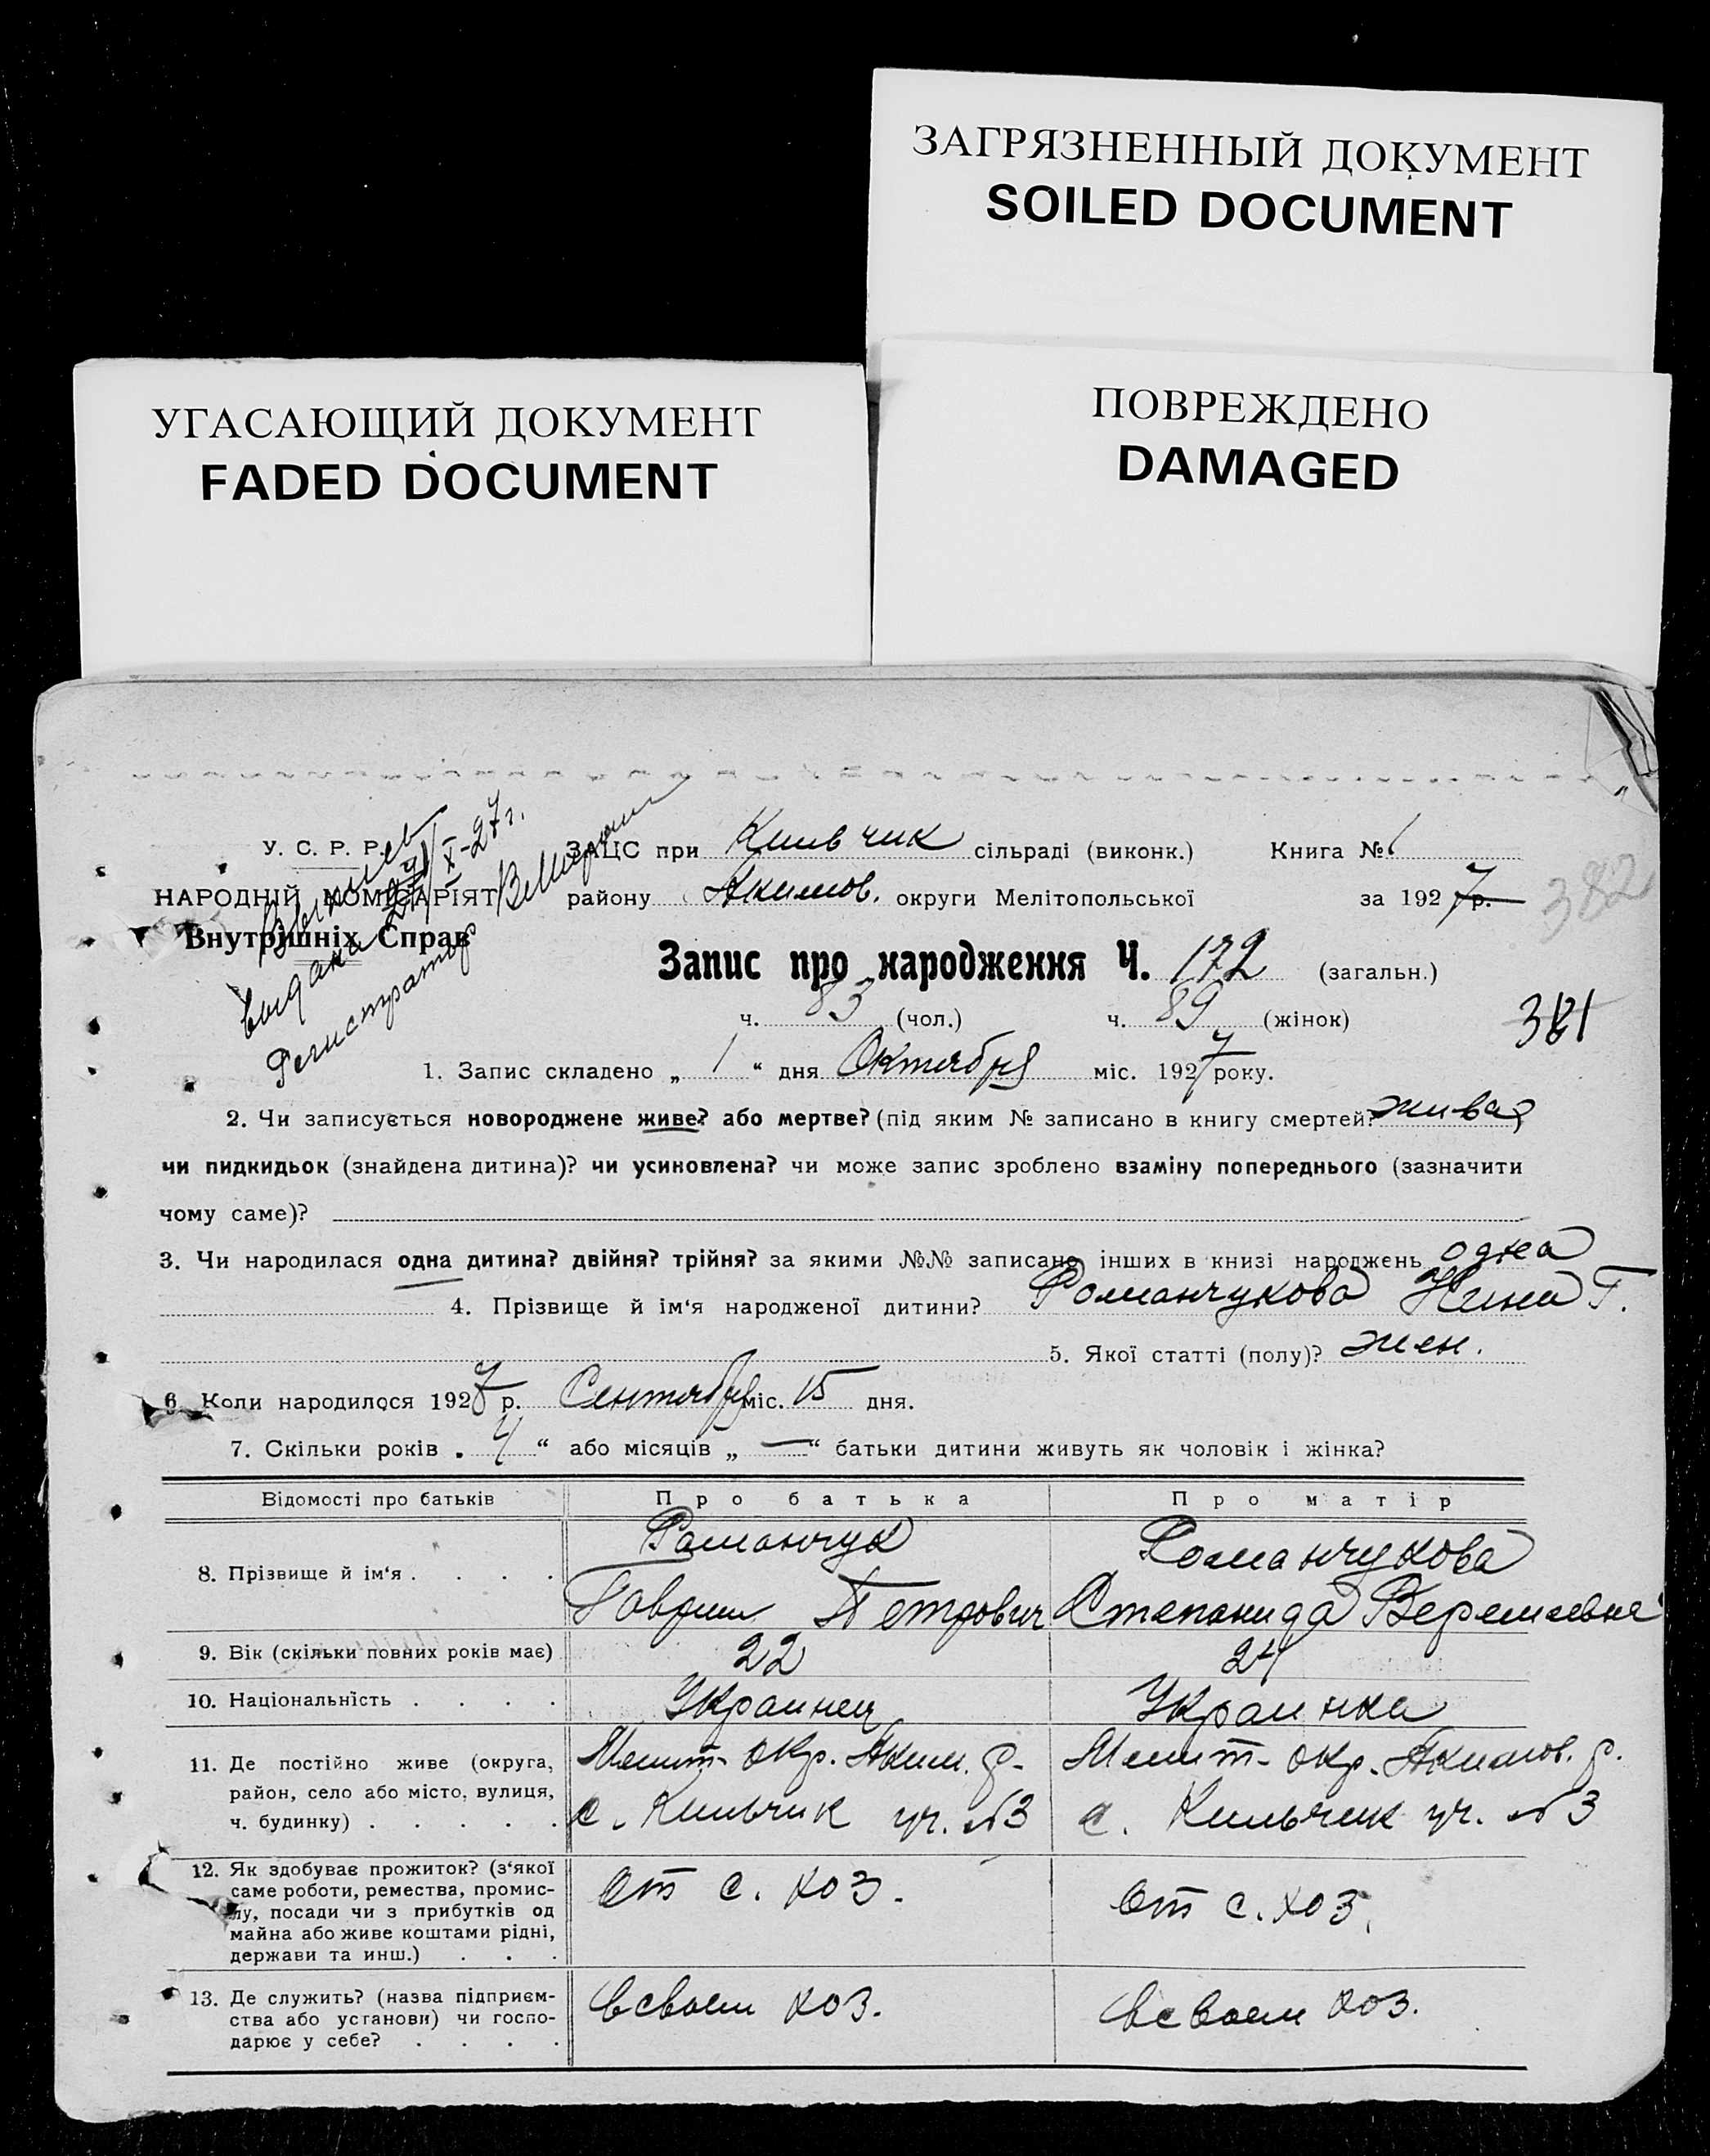 ЗАГРЯЗНЕННЫЙ ДОКУМЕНТ
SOILED DOCUMENT
УГАСАЮЩИЙ ДОКУМЕНТ
FADED DOCUMENT
ПОВРЕЖДЕНО
DAMAGED
У. С. Р. Р.
НАРОДНІЙ КОМІСАРІЯТ
Внутрішніх Справ
выдана
X-27 г.
Регистратор
ЗАЦС при Кильчик сільраді (виконк.) Книга № 1
району Акимов. округи Мелітопольської за 1927 р.
382
Запис про народження Ч. 172 (загальн.)
ч. 83 (чол.) ч. 89 (жінок)
381
1. Запис складено „ 1 “ дня Октября міс. 1927 року.
2. Чи записується новороджене живе? або мертве? (під яким № записано в книгу смертей? жива)
чи пидкидьок (знайдена дитина)? чи усиновлена? чи може запис зроблено взаміну попереднього (зазначити
чому саме)?
3. Чи народилася одна дитина? двійня? трійня? за якими №№ записано інших в книзі народжень одна
4. Прізвище й ім‘я народженої дитини? Романчукова Нина Г.
5. Якої статті (полу)? жен.
6. Коли народилося 1927 р. Сентября міс. 15 дня.
7. Скільки років „ 4 “ або місяців „ — “ батьки дитини живуть як чоловік і жінка?
Відомості про батьків Про батька Про матір
8. Прізвище й ім‘я . . . . Романчук Романчукова
Гаврил Петрович Степанида Веремеевна
9. Вік (скільки повних років має) 22 24
10. Національність . . . . Украинец Украинка
11. Де постійно живе (округа, Мелит- окр. Аким. р- Мелит- окр. Акимов. р.
район, село або місто, вулиця,
ч. будинку) . . . . . с. Кильчик уч. №3 с. Кильчик уч. №3
12. Як здобуває прожиток? (з‘якої
саме роботи, ремества, промис-
лу, посади чи з прибутків од От с. хоз. От с. хоз.
майна або живе коштами рідні,
держави та инш.) . . .
13. Де служить? (назва підприєм-
ства або установи) чи госпо- в своем хоз. в своем хоз.
дарює у себе? . . . .